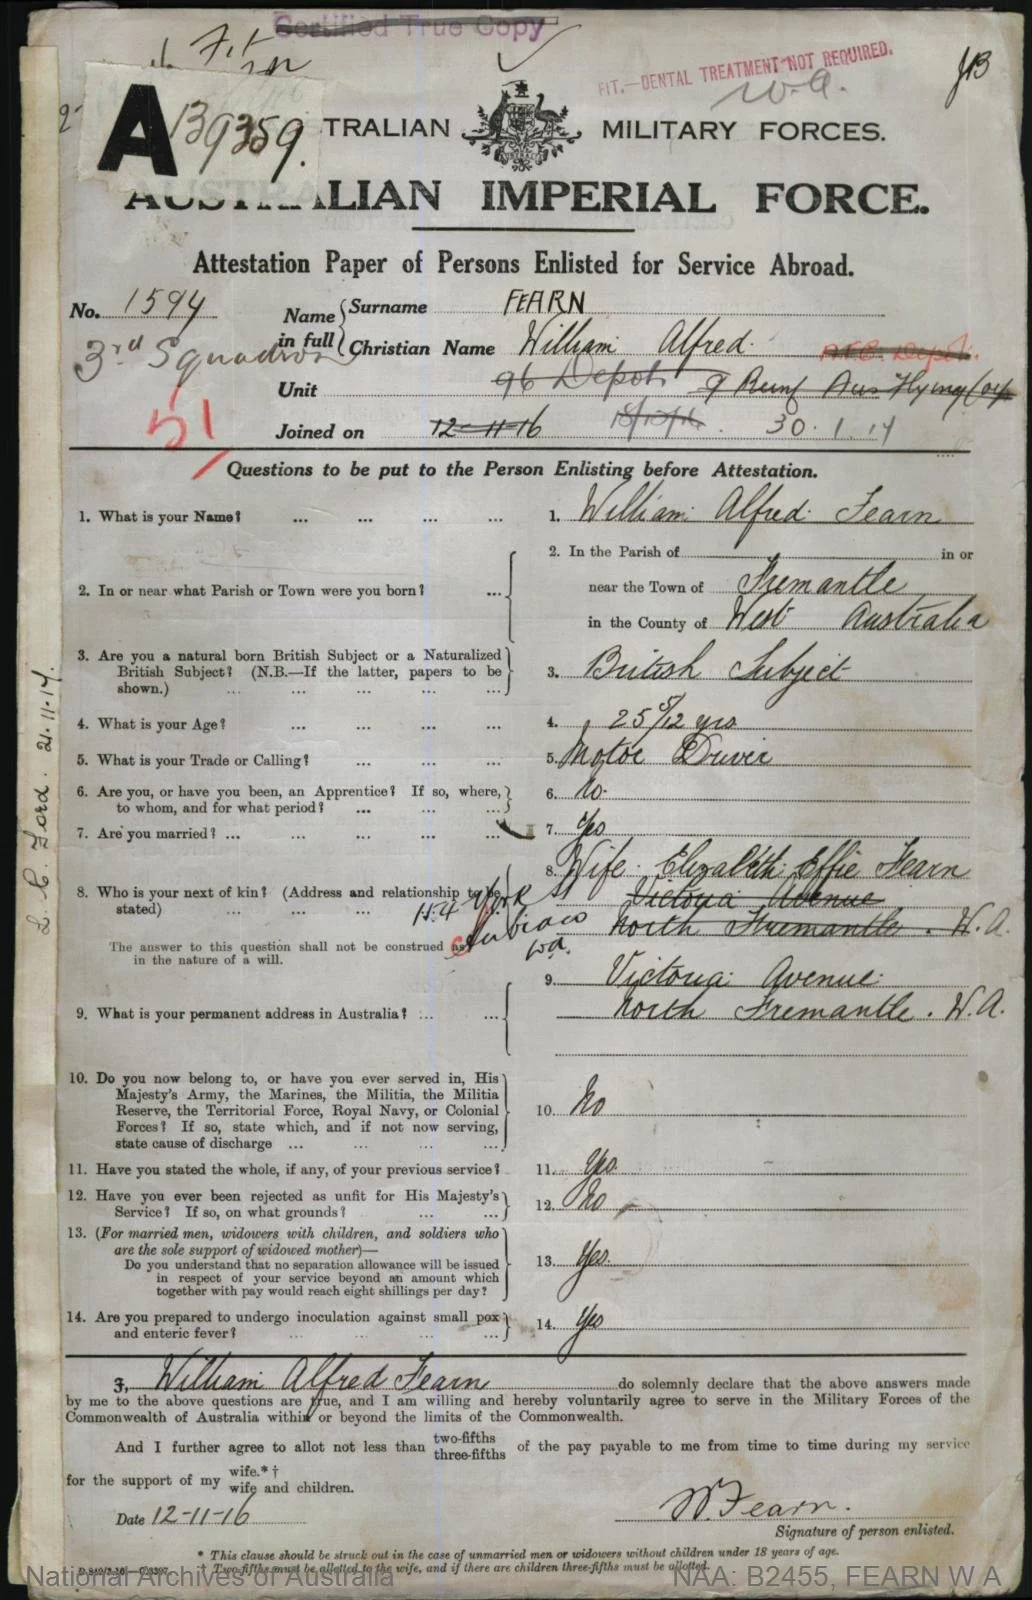 Certified True Copy
Fit
FIT.—DENTAL TREATMENT NOT REQUIRED.
W.A.
A 39359.
TRALIAN MILITARY FORCES.
AUSTRALIAN IMPERIAL FORCE.
Attestation Paper of Persons Enlisted for Service Abroad.
No. 1594
Name in full
Surname FEARN
Christian Name William Alfred.
3rd Squadron
A.F.C. Depot.
Unit 96 Depot 9 Reinf Aus Flying Corp
51
Joined on 12-11-16 30.1.17
Questions to be put to the Person Enlisting before Attestation.
1. What is your Name? ... ... ... ... 1. William Alfred Fearn
2. In or near what Parish or Town were you born? ...
2. In the Parish of in or
near the Town of Fremantle
in the County of West Australia
3. Are you a natural born British Subject or a Naturalized
British Subject? (N.B.—If the latter, papers to be
shown.) ... ... ... ...
3. British Subject
4. What is your Age? ... ... ... 4. 25 5/12 yrs
5. What is your Trade or Calling? ... ... ... 5. Motor Driver
6. Are you, or have you been, an Apprentice? If so, where,
to whom, and for what period? ... ... ...
6. No.
7. Are you married? ... ... ... ... 7. Yes
8. Who is your next of kin? (Address and relationship to be
stated) ... ... ...
The answer to this question shall not be construed as
in the nature of a will.
8. Wife. Elizabeth Effie Fearn
Victoria Avenue
North Fremantle. W.A.
154 York St
Subiaco
W.A.
9. What is your permanent address in Australia? ... ...
9. Victoria Avenue
North Fremantle. W.A.
10. Do you now belong to, or have you ever served in, His
Majesty's Army, the Marines, the Militia, the Militia
Reserve, the Territorial Force, Royal Navy, or Colonial
Forces? If so, state which, and if not now serving,
state cause of discharge ... ... ... ...
10. No
11. Have you stated the whole, if any, of your previous service? 11. Yes
12. Have you ever been rejected as unfit for His Majesty's
Service? If so, on what grounds? ... ...
12. No
13. (For married men, widowers with children, and soldiers who
are the sole support of widowed mother)—
Do you understand that no separation allowance will be issued
in respect of your service beyond an amount which
together with pay would reach eight shillings per day?
13. Yes.
14. Are you prepared to undergo inoculation against small pox
and enteric fever? ... ... ... ...
14. Yes
I, William Alfred Fearn do solemnly declare that the above answers made
by me to the above questions are true, and I am willing and hereby voluntarily agree to serve in the Military Forces of the
Commonwealth of Australia within or beyond the limits of the Commonwealth.
And I further agree to allot not less than two-fifths three-fifths of the pay payable to me from time to time during my service
for the support of my wife.*† wife and children.
Date 12-11-16
W. Fearn.
Signature of person enlisted.
* This clause should be struck out in the case of unmarried men or widowers without children under 18 years of age.
† Two-fifths must be allotted to the wife, and if there are children three-fifths must be allotted.
21.11.17.
National Archives of Australia
NAA: B2455, FEARN W A